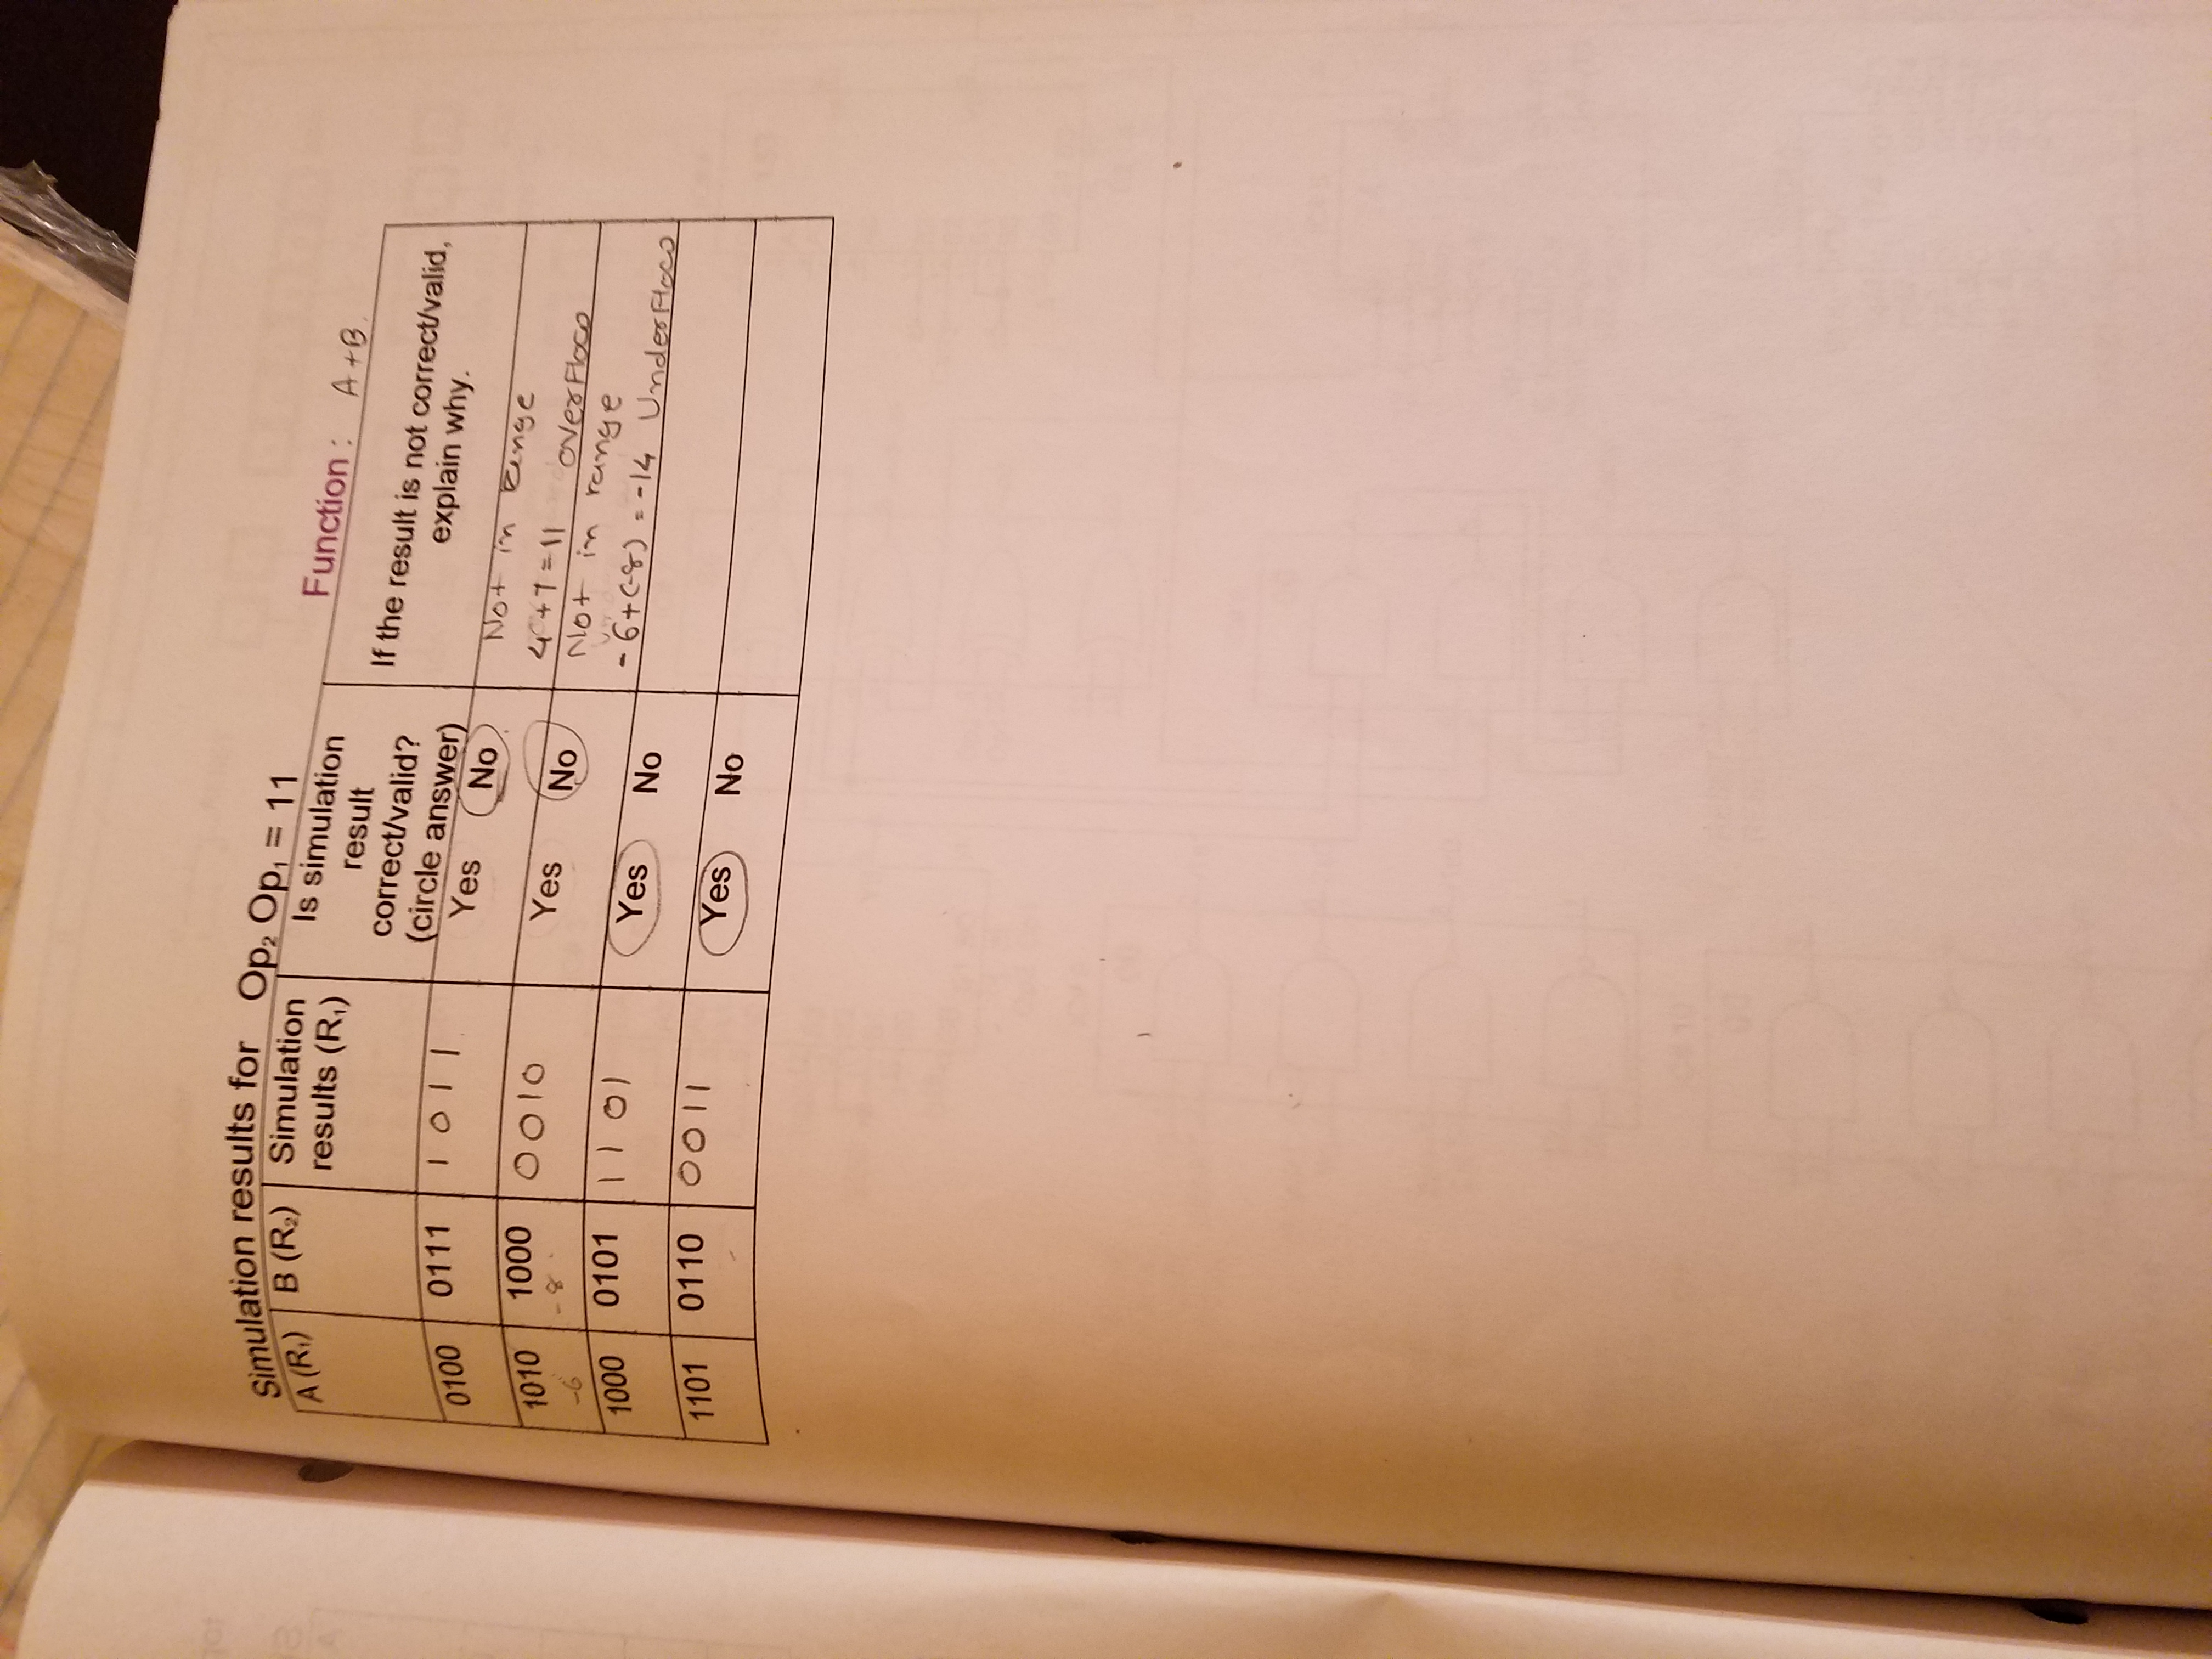 Simulation results for Op₂ Op₁ = 11 Function : A+B.
A (R₁) B (R₂) Simulation results (R₁) Is simulation result correct/valid? (circle answer) If the result is not correct/valid, explain why.
0100 0111 1011 Yes No Not in range
4+7=11 overflow
1010 1000 0010 Yes No Not in range
-6 -8 -6+(-8) = -14 Underflow
1000 0101 1101 Yes No
1101 0110 0011 Yes No